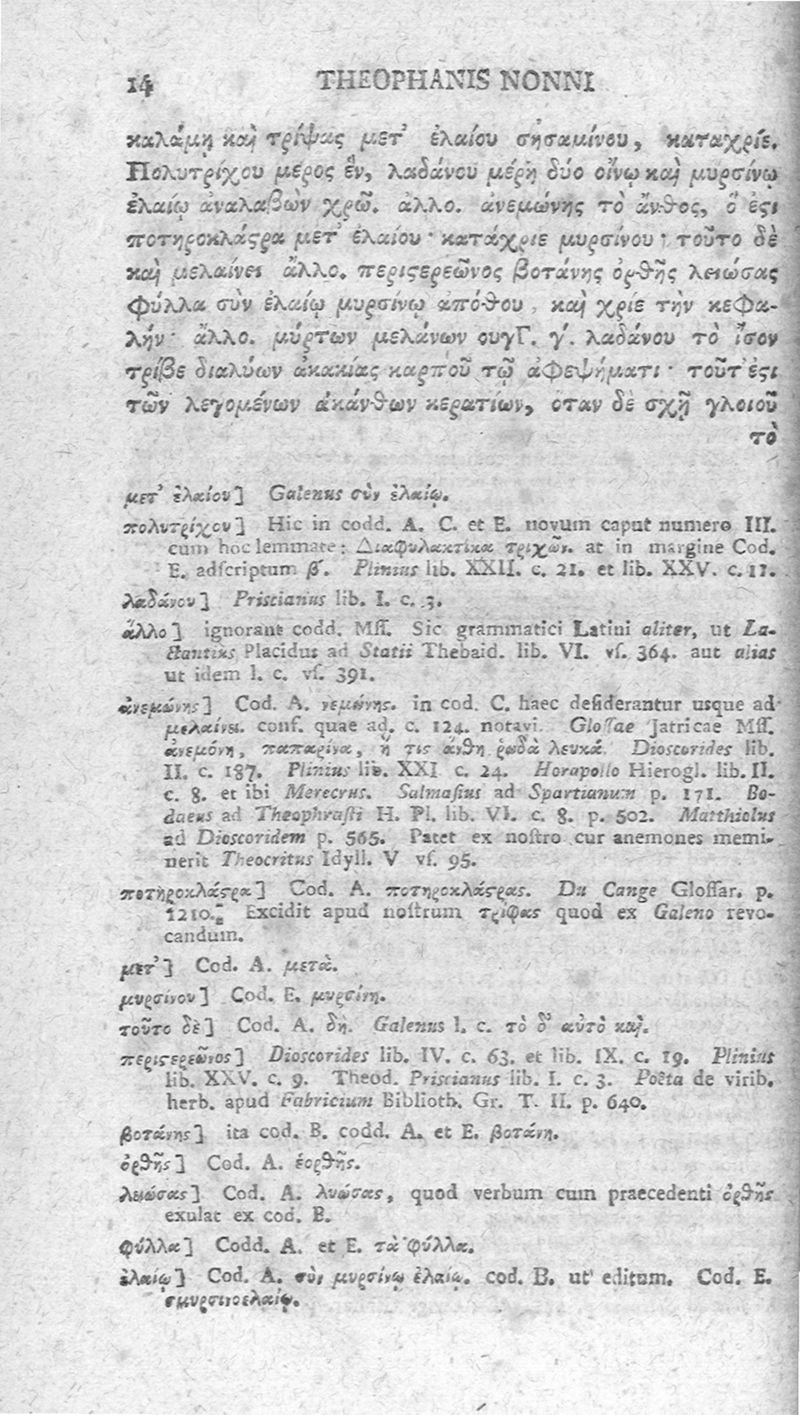 14 THEOPHANIS NONNI
καλάμῃ καὶ τρίψας μετ᾽ ἐλαίου σησαμίνου, κατάχριε.
Πολυτρίχου μέρος ἓν, λαδάνου μέρη δύο οἴνῳ καὶ μυρσίνῳ
ἐλαίῳ ἀναλαβὼν χρῶ. ἄλλο. ἀνεμώνης τὸ ἄνθος, ὅ ἐϛι
ποτηροκλάϛρα μετ᾽ ἐλαίου· κατάχριε μυρσίνου· τοῦτο δὲ
καὶ μελαίνει ἄλλο. περιϛερεῶνος βοτάνης ὀρθῆς λειώσας
φύλλα σὺν ἐλαίῳ μυρσίνῳ ἀπόθου, καὶ χρίε τὴν κεφα-
λήν· ἄλλο. μύρτων μελάνων ουγΓ. γ΄. λαδάνου τὸ ἶσον
τρίβε διαλύων ἀκακίας καρποῦ τῷ ἀφεψήματι· τοῦτ᾽ ἐϛι
τῶν λεγομένων ἀκάνθων κερατίων, οταν δὲ σχῇ γλοιοῦ
τὸ
μετ᾽ ἐλαίου] Galenus σὺν ἐλαίῳ.
πολυτρίχου] Hic in codd. A. C. et E. novum caput numero III.
cum hoc lemmate: Διαφυλακτικα τριχῶν. at in margine Cod.
E. adſcriptum β΄. Plinius lib. XXII. c. 21. et lib. XXV. c. 11.
λαδάνου] Priscianus lib. I. c. 3.
ἄλλο] ignorant codd. Mſſ. Sic grammatici Latini aliter, ut La-
ctantius Placidus ad Statii Thebaid. lib. VI. vſ. 364. aut alias
ut idem l. c. vſ. 391.
ἀνεμώνης] Cod. A. νεμώνης. in cod. C. haec deſiderantur usque ad
μελαίνει. conf. quae ad. c. 124. notavi. Gloſſae Jatricae Mſſ.
ἀνεμόνη, παπαρίνα, ἤ τις ἄνθη ῥωδὰ λευκά. Dioscorides lib.
II. c. 187. Plinius lib. XXI c. 24. Horapollo Hierogl. lib. II.
c. 8. et ibi Merecrus. Salmaſius ad Spartianum p. 171. Bo-
daeus ad Theophraſti H. Pl. lib. VI. c. 8. p. 502. Matthiolus
ad Dioscoridem p. 565. Patet ex noſtro cur anemones memi-
nerit Theocritus Idyll. V vſ. 95.
ποτηροκλάϛρα] Cod. A. ποτηροκλάϛρας. Du Cange Gloſſar. p.
1210. Excidit apud noſtrum τρίψας quod ex Galeno revo-
candum.
μετ᾽] Cod. A. μετὰ.
μυρσίνου] Cod. E. μυρσίνη.
τοῦτο δὲ] Cod. A. δή. Galenus l. c. τὸ δ᾽ αὐτὸ καὶ.
περιϛερεῶνος] Dioscorides lib. IV. c. 63. et lib. IX. c. 19. Plinius
lib. XXV. c. 9. Theod. Priscianus lib. I. c. 3. Poëta de virib.
herb. apud Fabricium Biblioth. Gr. T. II. p. 640.
βοτάνης] ita cod. B. codd. A. et E. βοτάνη.
ὀρθῆς] Cod. A. ἑορθῆς.
λειώσας] Cod. A. λυώσας, quod verbum cum praecedenti ὀρθῆς
exulat ex cod. B.
φύλλα] Codd. A. et E. τὰ φύλλα.
ἐλαίῳ] Cod. A. σὺν μυρσίνῳ ἐλαίῳ. cod. B. ut editum. Cod. E.
σμυρσινοελαίῳ.